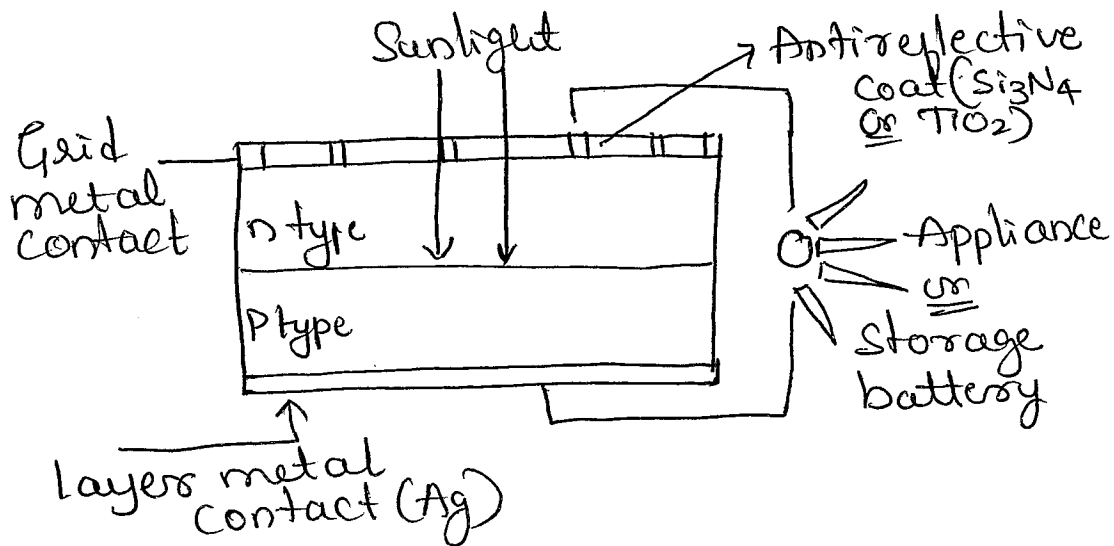 Sunlight
Antireflective
coat (Si3N4
or TiO2)
Grid
metal
contact
n type
P type
Appliance
or
Storage
battery
Layer metal
contact (Ag)